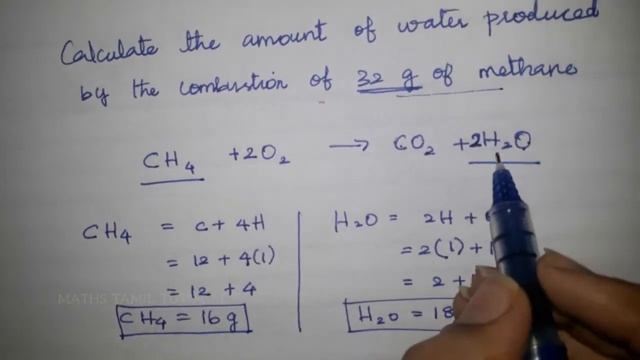 Calculate the amount of water produced
by the combustion of 32 g of methane
CH₄ + 2O₂ → CO₂ + 2H₂O
CH₄ = C + 4H
= 12 + 4(1)
= 12 + 4
CH₄ = 16 g
H₂O = 2H +
= 2(1) +
= 2 +
H₂O = 18
MATHS TAMIL